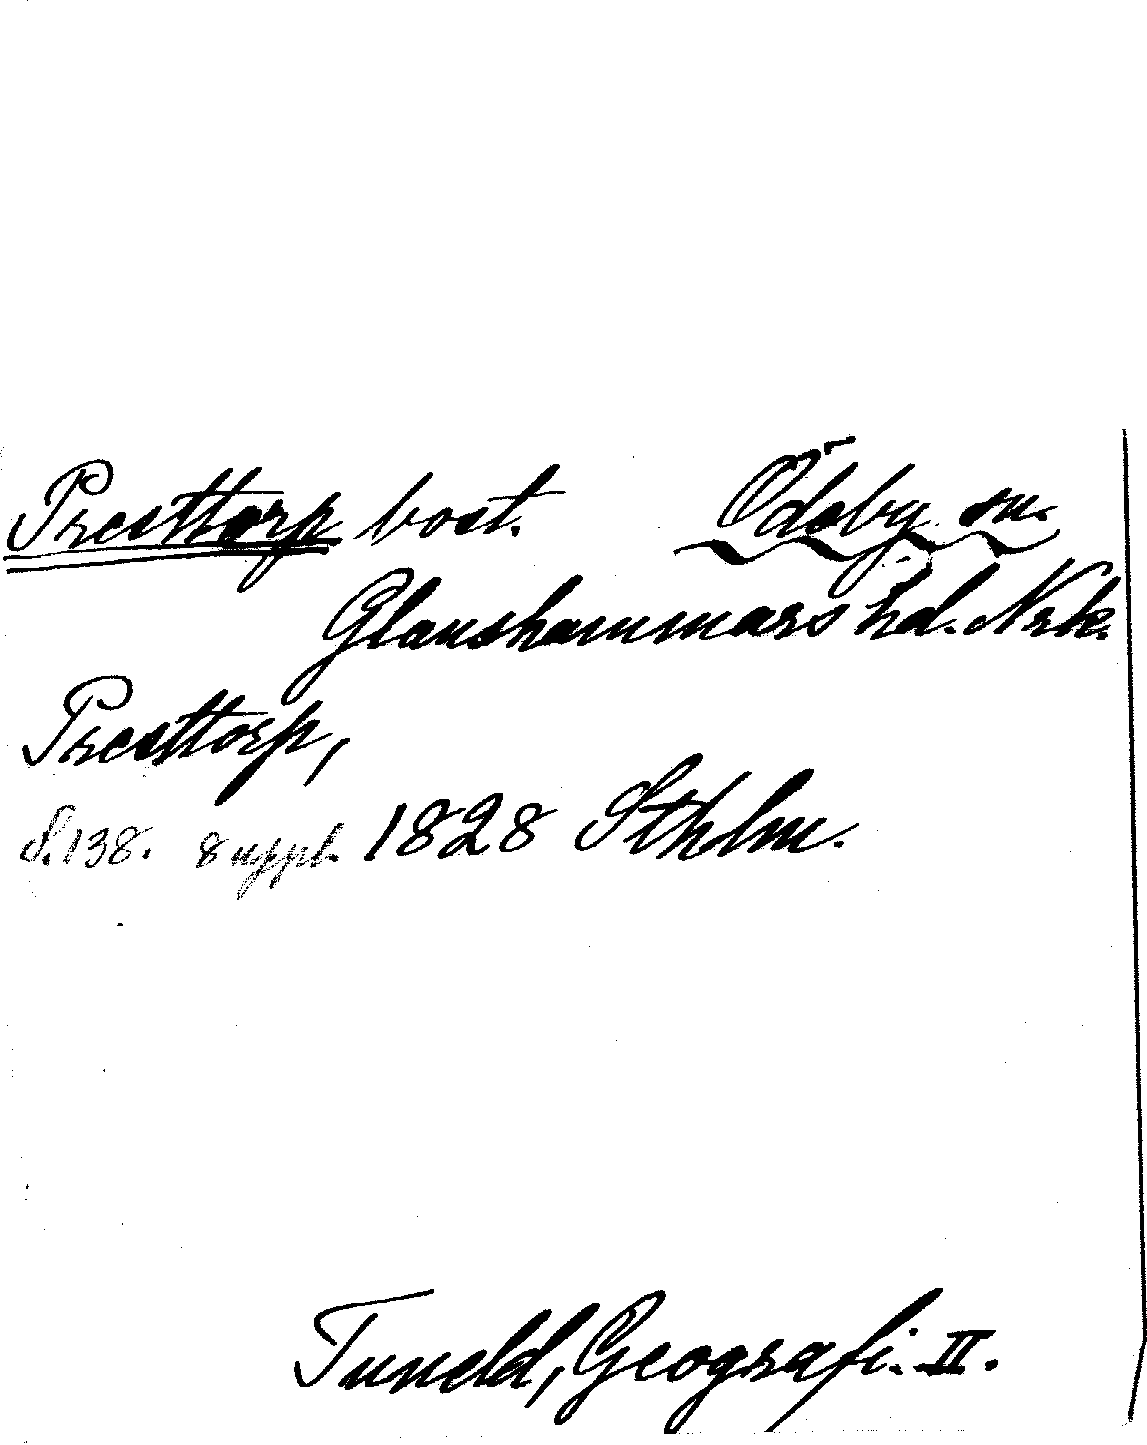 Presttorp bost. Ödeby sn.
Glanshammars hd. Nrk.
Presttorp,
S. 138. 8 uppl. 1828 Sthlm.
Tuneld, Geografi. II.